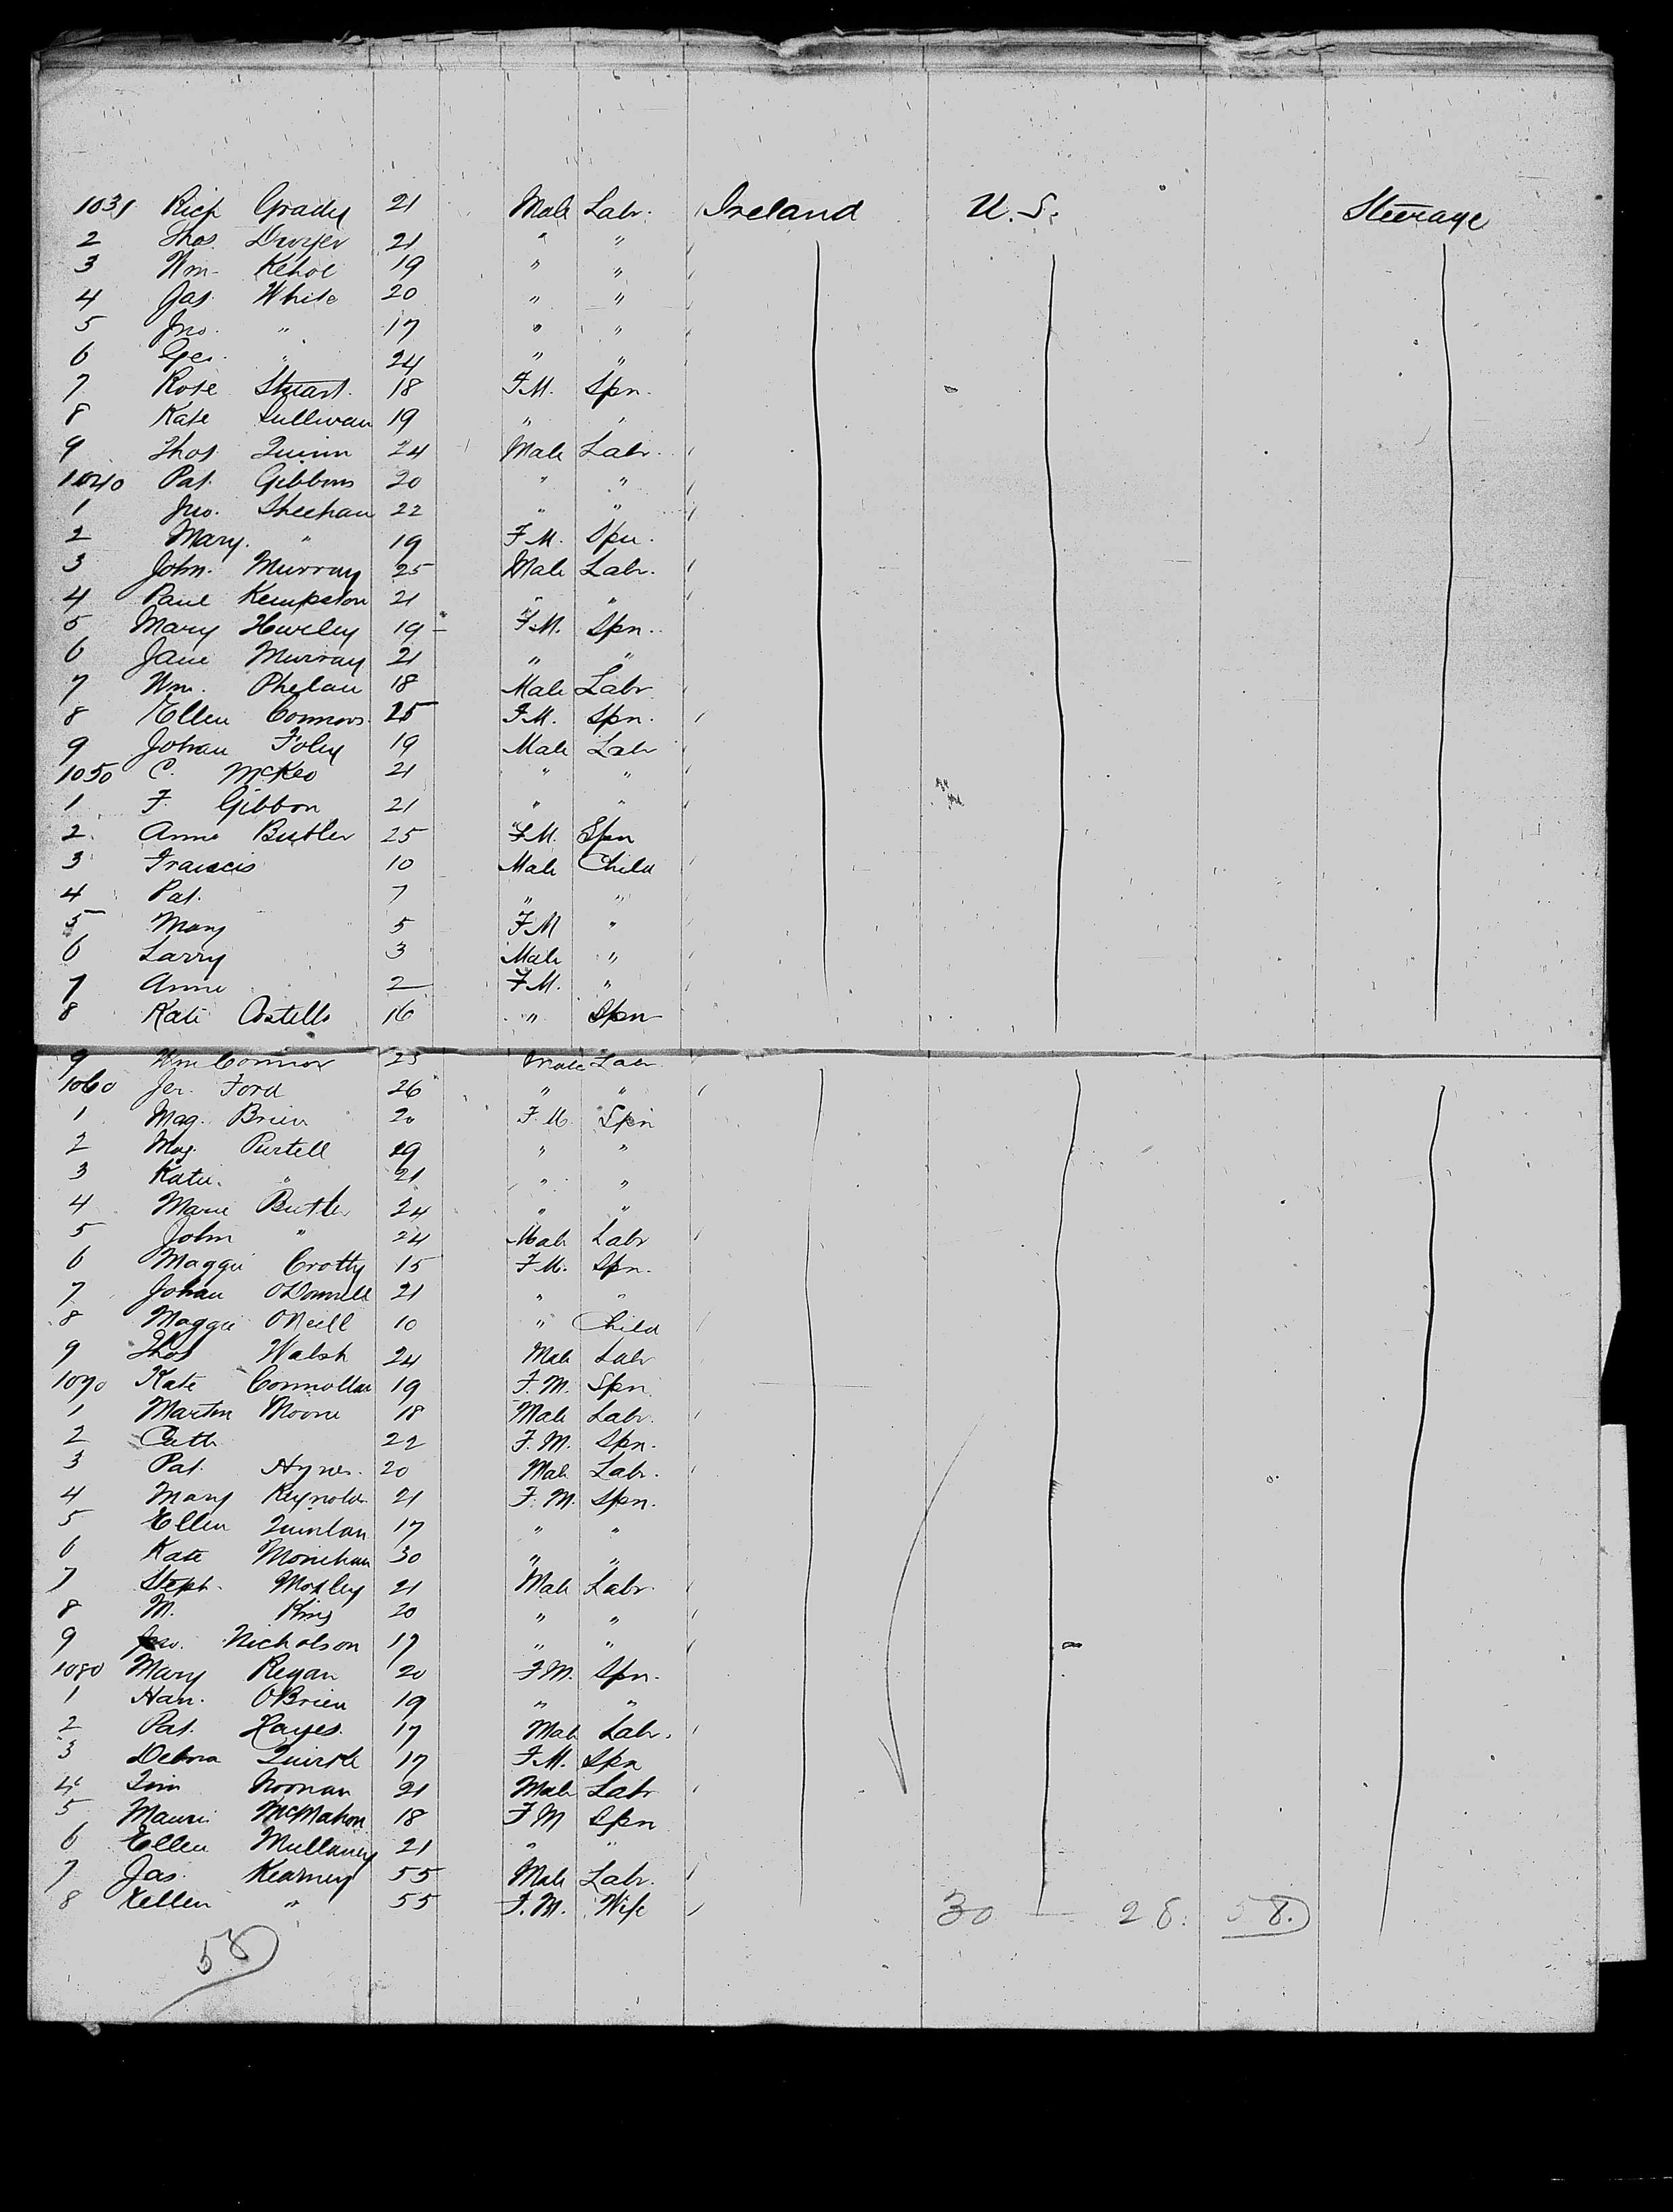 1031 Rich Grady 21 Male Labr. Ireland U.S. Steerage
2 Thos. Dwyer 21 " "
3 Wm. Kehoe 19 " "
4 Jas. White 20 " "
5 Jno. " 17 " "
6 Geo. " 24 " "
7 Rose Stuart. 18 F.M. Spn.
8 Kate Sullivan 19 " "
9 Thos Quinn 24 Male Labr.
1040 Pat. Gibbons 20 " "
1 Jno. Sheehan 22 " "
2 Mary. " 19 F.M. Spn.
3 John. Murray 25 Male Labr.
4 Paul Kempston 21 " "
5 Mary Hurley 19 F.M. Spn.
6 Jane Murray 21 " "
7 Wm. Phelan 18 Male Labr
8 Ellen Connors 25 F.M. Spn.
9 Johan Foley 19 Male Labr
1050 C. McKeo 21 " "
1 F. Gibbon 21 " "
2. Anne Butler 25 F.M. Spn
3 Francis 10 Male Child
4 Pat. 7 " "
5 Mary 5 F M "
6 Larry 3 Male "
7 Anne 2 F.M. "
8 Kate Costello 16 " Spn
9 Wm Connor 23 Male Labr
1060 Jer. Ford 26 " "
1 Mag. Brien 20 F.M. Spn
2 Mag. Purtell 19 " "
3 Katie. " 21 " "
4 Marie Butler 24 " "
5 John " 24 Male Labr
6 Maggie Crotty 15 F.M. Spn.
7 Johan ODonnell 21 " "
8 Maggie ONeill 10 " Child
9 Thos Walsh 24 Male Labr
1070 Kate Connollan 19 F.M. Spn.
1 Martin Moore 18 Male Labr.
2 Cath 22 F.M. Spn.
3 Pat. Hynes. 20 Male Labr.
4 Mary Reynolds 21 F.M. Spn.
5 Ellen Quinlan 17 " "
6 Kate Monehan 30 " "
7 Steph. Moxley 21 Male Labr.
8 M. King 20 " "
9 Jno. Nicholson 17 " "
1080 Mary Regan 20 F.M. Spn.
1 Han. OBrien 19 " "
2 Pat. Hayes 17 Male Labr.
3 Debora Quirke 17 F.M. Spn
4 Tim Noonan 21 Male Labr
5 Mauri McMahon 18 F M Spn
6 Ellen Mullaney 21 " "
7 Jas. Kearney 55 Male Labr.
8 Ellen " 55 F.M. Wife 30 — 28. 58.
58